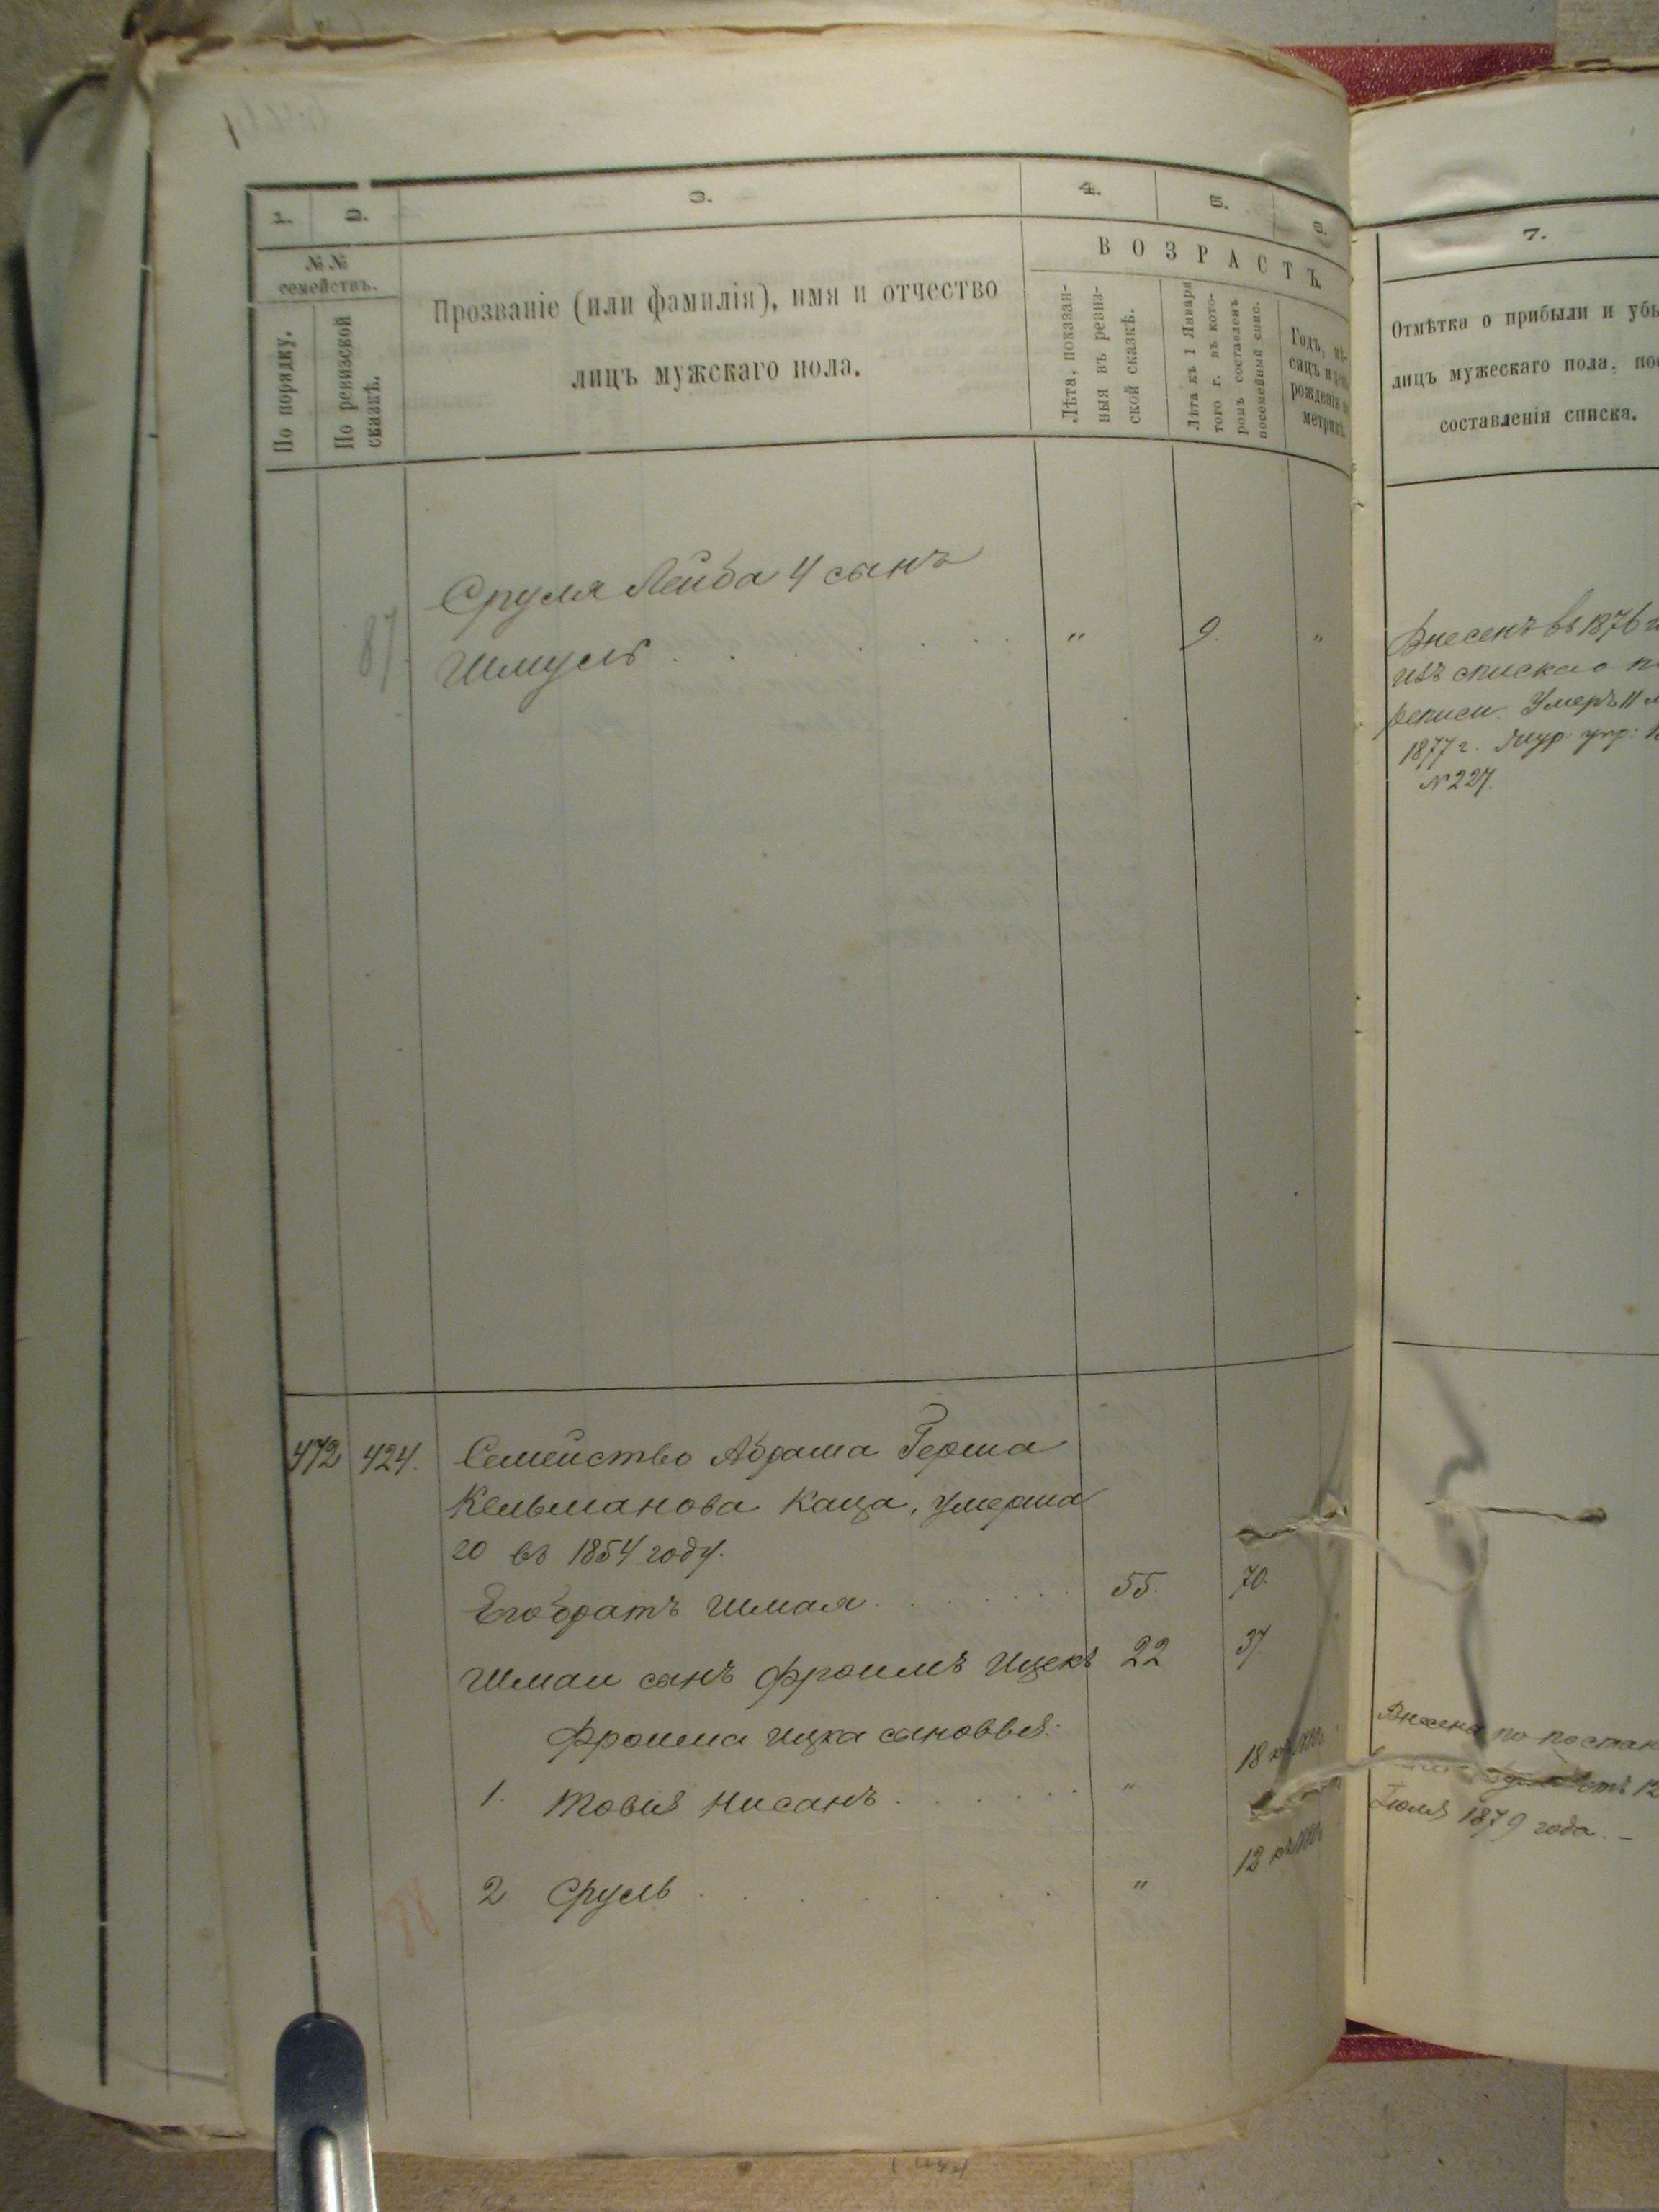 1. 2. 3. 4. 5. 6. 7.
№ №
семействъ.
По порядку.
По ревизской
сказкѣ.
Прозваніе (или фамилія), имя и отчество
лицъ мужскаго пола.
ВОЗРАСТЪ.
Лѣта, показан-
ныя въ ревиз-
ской сказкѣ.
Лѣта къ 1 Января
того г. въ кото-
ромъ составленъ
посемейный спис.
Годъ, мѣ-
сяцъ и
рожденія
метрик
Отмѣтка о прибыли и убы
лицъ мужескаго пола, пос
составленія списка.
Сруля Лейба 4 сынъ
87. Шмуль . . . . . . . " 9. "
Внесенъ въ 1876 г
изъ списка о п
реписи. Умеръ 11 м
1877 г. Жур: упр:
№ 227.
472 424. Семейство Абрама Герша
Кельманова Каца, умерша
го въ 1854 году.
Его братъ Шмая . . . . . . 55. 70.
Шмаи сынъ Фроимъ Ицекъ 22 37.
Фроима Ицка сыновья:
1. Товія Нисанъ . . . . . . " 18
2 Сруль . . . . . . . " 12
88
Внесены по постан
12
Іюля 1879 года. –